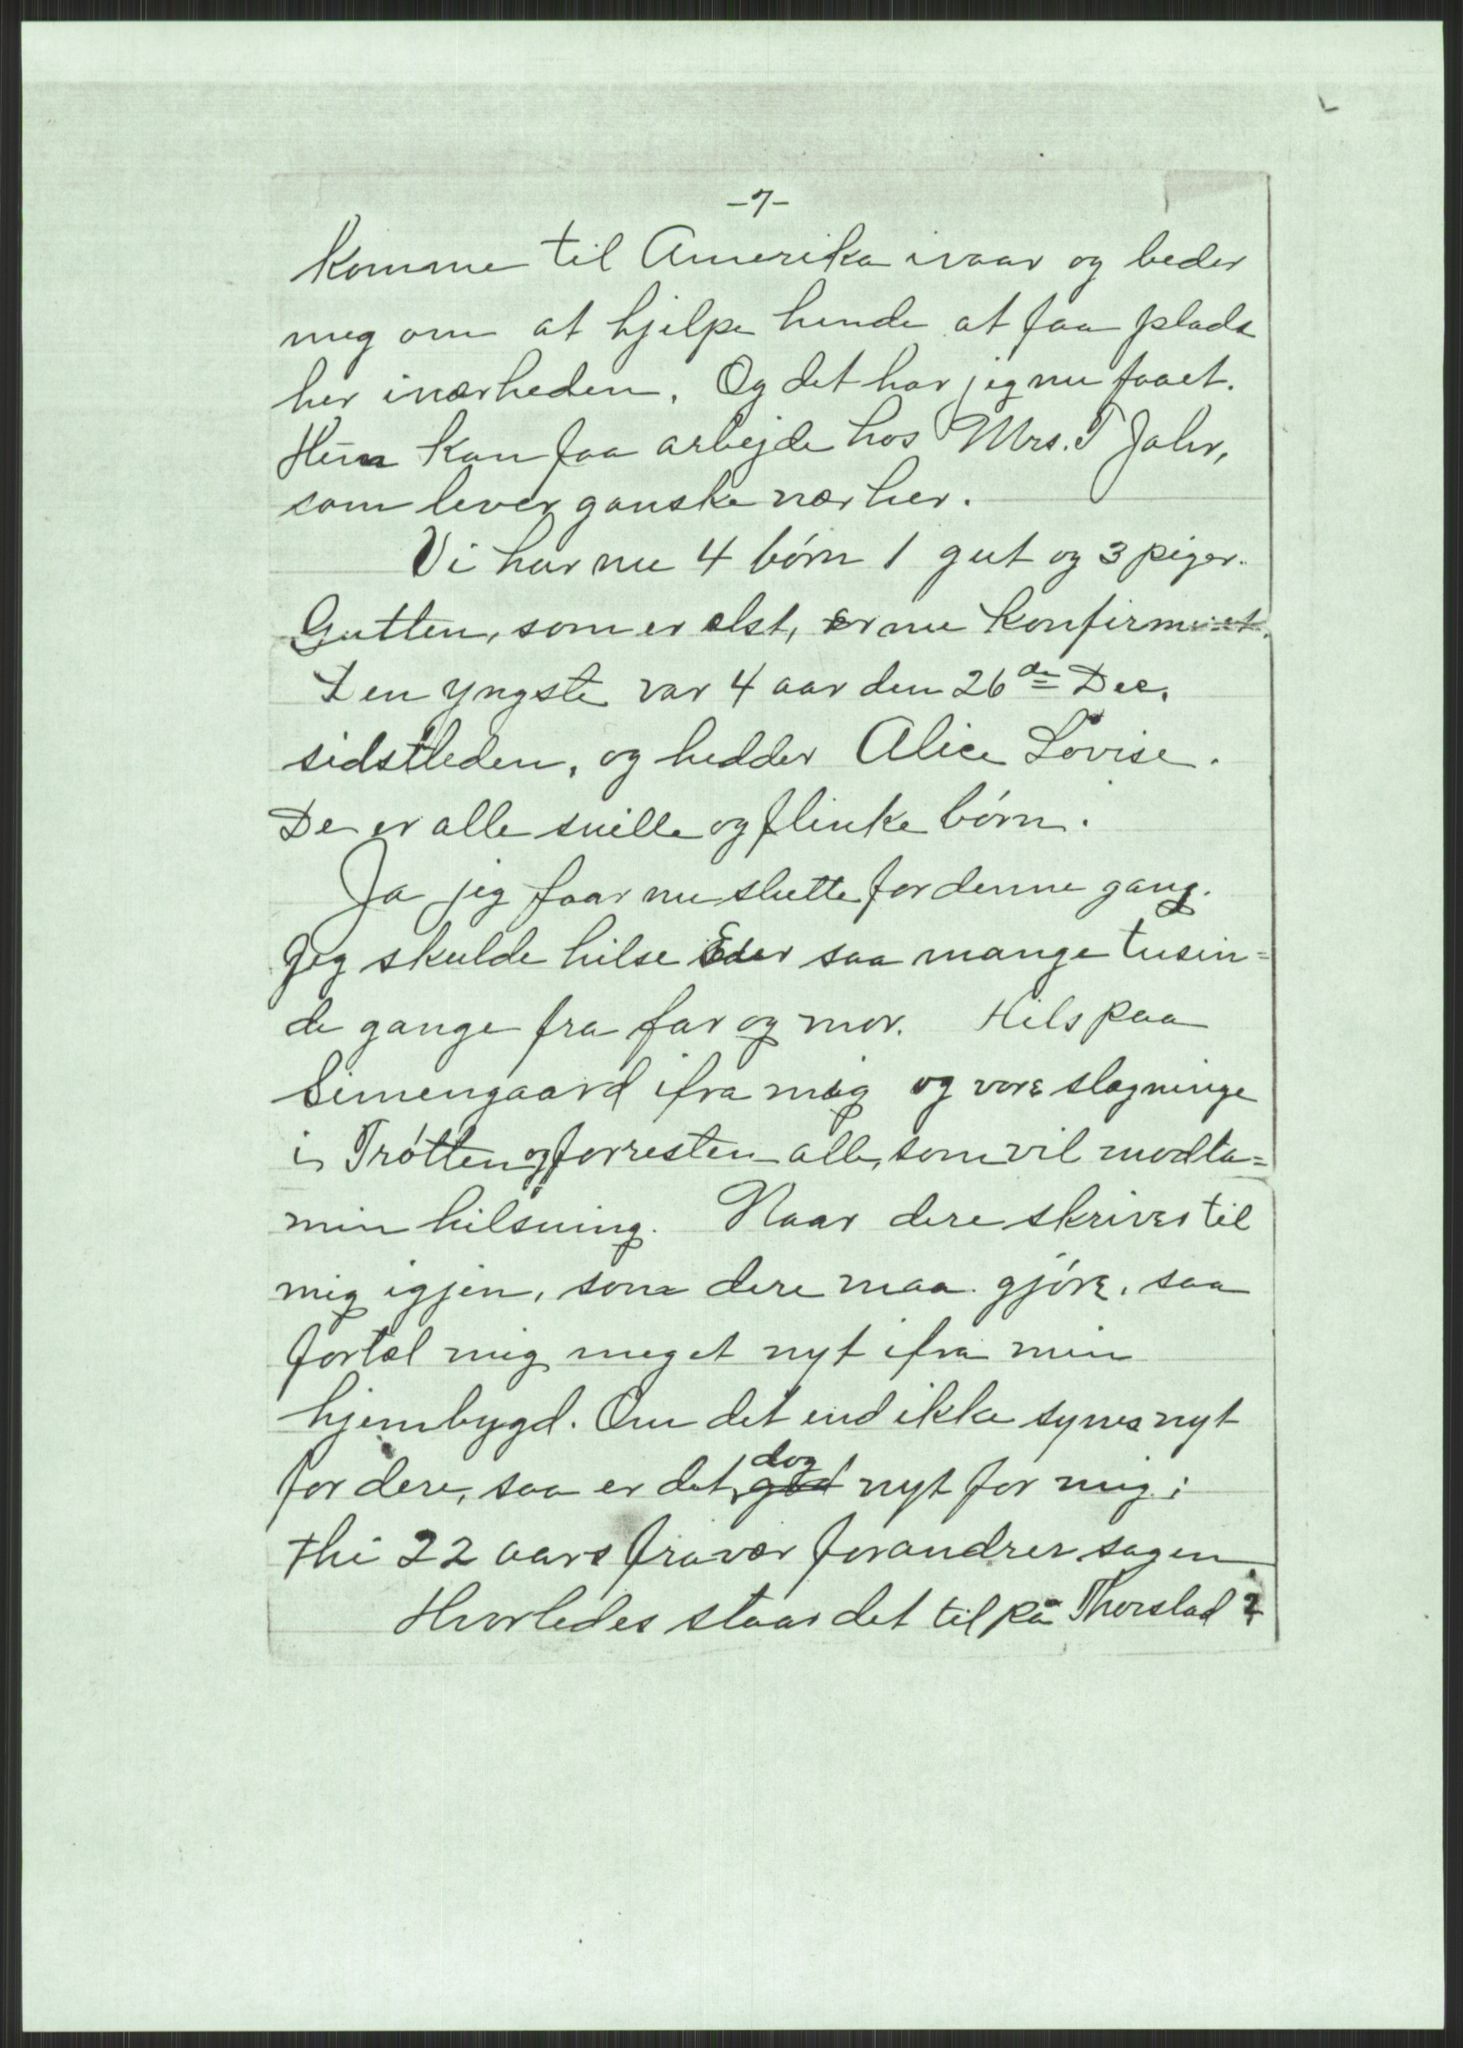 -7-
komme til Amerika ivaar og beder
mig om at hjelpe hende at faa plads
her inærheden. Og det har jeg nu faaet.
Hun kan faa arbejde hos Mrs. T Jahr,
som lever ganske nær her.
Vi har nu 4 børn 1 gut og 3 piger.
Gutten, som er elst, er nu konfirmeret.
Den yngste var 4 aar den 26de Dec.
sidstleden, og hedder Alice Lovise.
De er alle snille og flinke børn.
Ja jeg faar nu slutte for denne gang.
Jeg skulde hilse Eder saa mange tusin=
de gange fra far og mor. Hils paa
Simengaard ifra mig og vore slægninge
i Trøtten og forresten alle, som vil modta=
min hilsning. Naar dere skriver til
mig igjen, som dere maa gjøre, saa
fortæl mig meget nyt ifra min
hjembygd. Om det end ikke synes nyt
for dere, saa er det dog nyt for mig;
thi 22 aars fravær forandrer sagen.
Hvorledes staar det til på Thorslad?